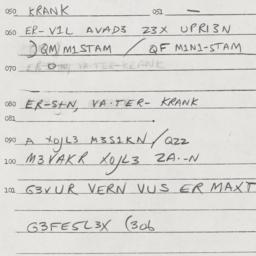 050 KRANK 051 —
060 ER-V1L AVAD3 Z3X UPRI3N
QM M1STAM / QF M1N1-STAM
070
080 ER-S+N, VA·TER- KRANK
081
090 A XOJL3 M3S1KN/QZZ
100 M3VAKR XOJL3 ZA·-N
101 G3VUR VERN VUS ER MAXT
G3FE5L3X (306